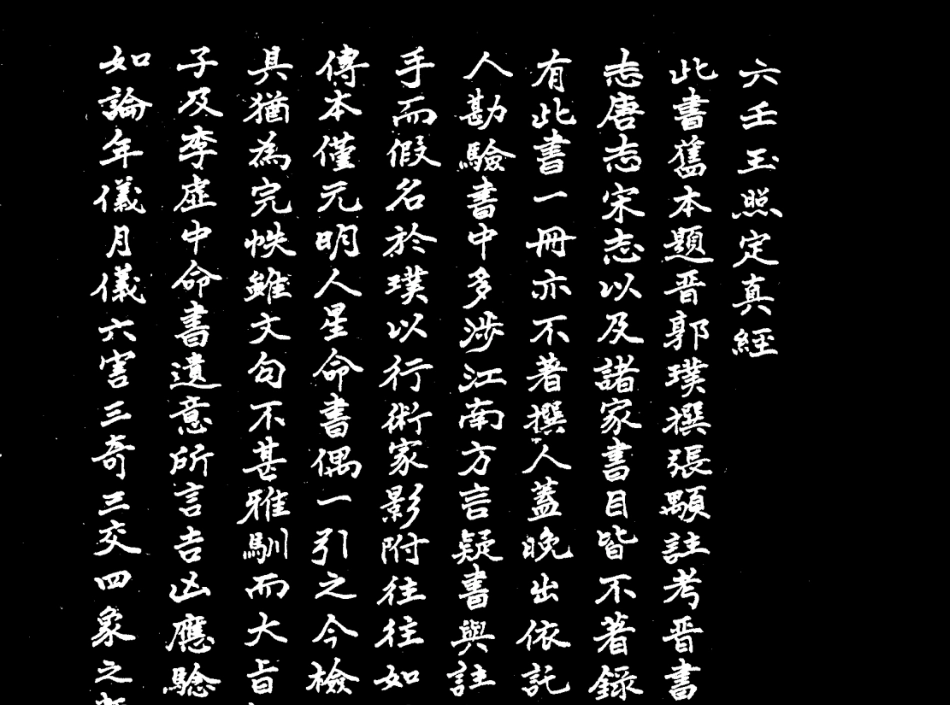 六壬玉照定真經
此書舊本題晉郭璞撰張顒註考晉書
志唐志宋志以及諸家書目皆不著錄
有此書一冊亦不著撰人蓋晚出依託
人勘驗書中多涉江南方言疑書與註
手而假名於璞以行術家影附往往如
傳本僅元明人星命書偶一引之今檢
具猶為完帙雖文句不甚雅馴而大旨
子及李虛中命書遺意所言吉凶應驗
如論年儀月儀六害三奇三交四象之